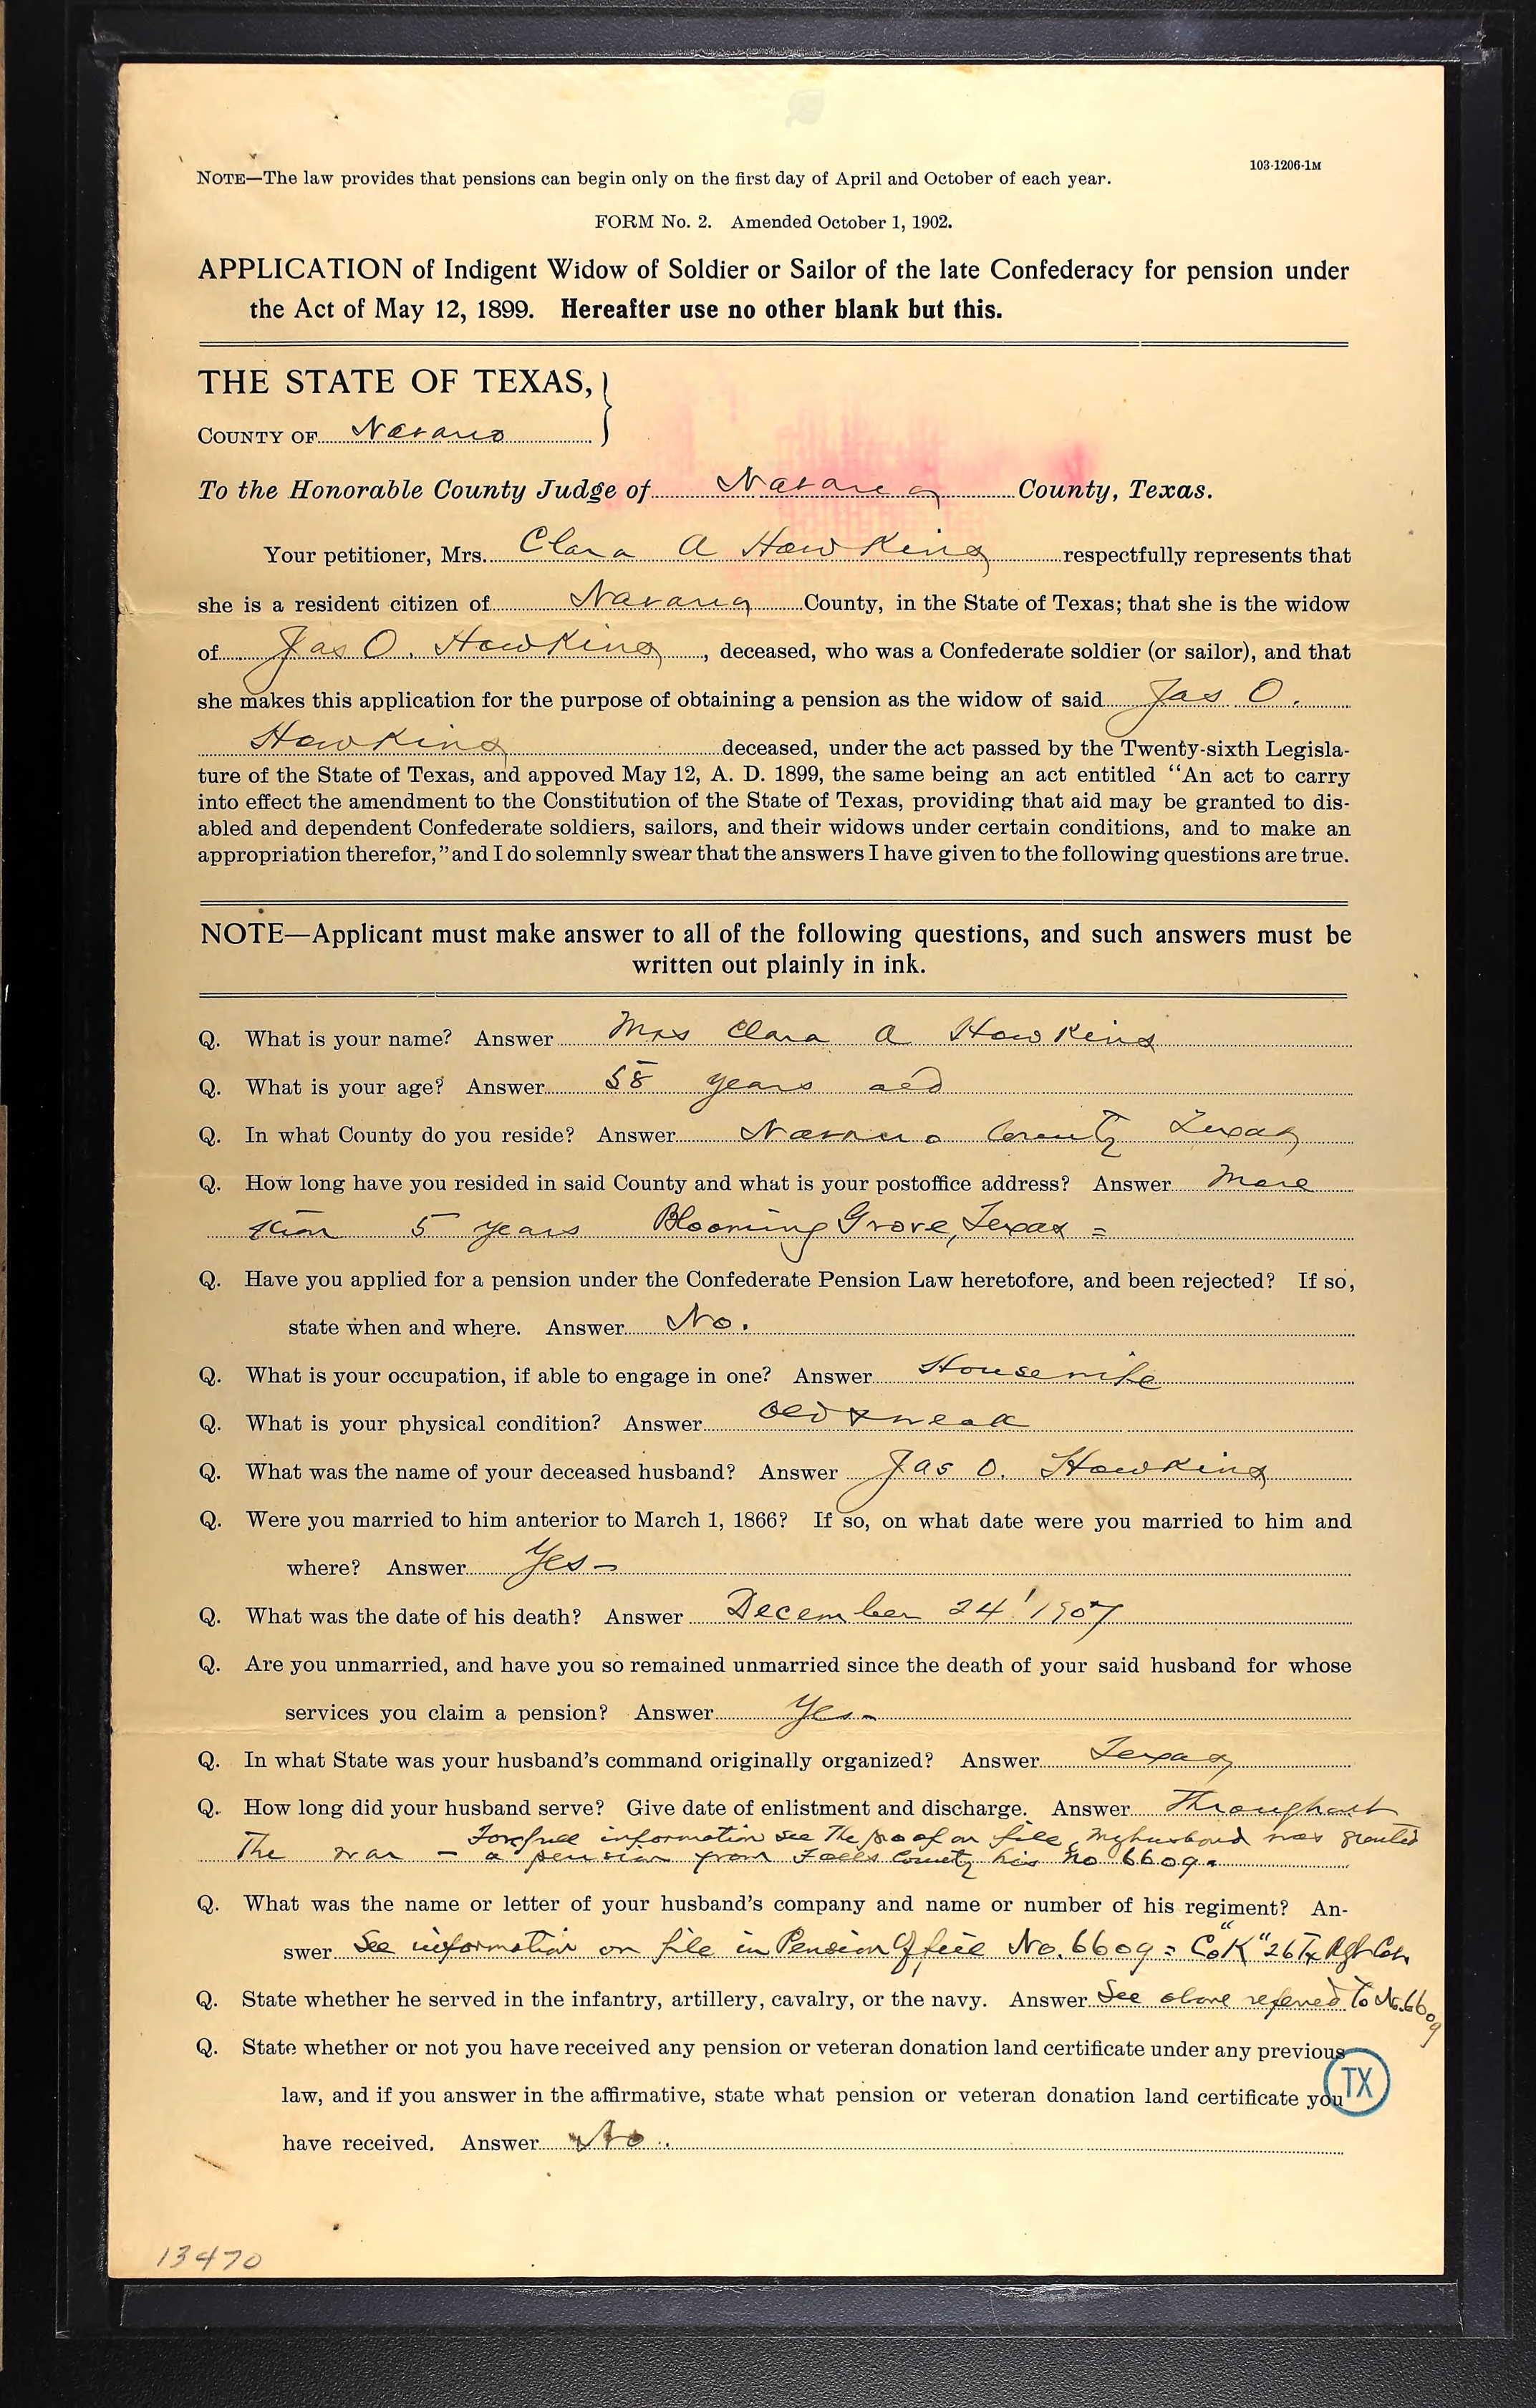 103-1206-1M
NOTE—The law provides that pensions can begin only on the first day of April and October of each year.
FORM No. 2. Amended October 1, 1902.
APPLICATION of Indigent Widow of Soldier or Sailor of the late Confederacy for pension under
the Act of May 12, 1899. Hereafter use no other blank but this.
THE STATE OF TEXAS,}
COUNTY OF Navarro
To the Honorable County Judge of Navarro County, Texas.
Your petitioner, Mrs. Clara A Hawkins respectfully represents that
she is a resident citizen of Navarro County, in the State of Texas; that she is the widow
of Jas O. Hawkins, deceased, who was a Confederate soldier (or sailor), and that
she makes this application for the purpose of obtaining a pension as the widow of said Jas O.
Hawkins deceased, under the act passed by the Twenty-sixth Legisla-
ture of the State of Texas, and appoved May 12, A. D. 1899, the same being an act entitled "An act to carry
into effect the amendment to the Constitution of the State of Texas, providing that aid may be granted to dis-
abled and dependent Confederate soldiers, sailors, and their widows under certain conditions, and to make an
appropriation therefor," and I do solemnly swear that the answers I have given to the following questions are true.
NOTE—Applicant must make answer to all of the following questions, and such answers must be
written out plainly in ink.
Q. What is your name? Answer Mrs Clara A Hawkins
Q. What is your age? Answer 58 years old
Q. In what County do you reside? Answer Navarro County Texas
Q. How long have you resided in said County and what is your postoffice address? Answer More
than 5 years Blooming Grove, Texas =
Q. Have you applied for a pension under the Confederate Pension Law heretofore, and been rejected? If so,
state when and where. Answer No.
Q. What is your occupation, if able to engage in one? Answer Housewife
Q. What is your physical condition? Answer Old & weak
Q. What was the name of your deceased husband? Answer Jas O. Hawkins
Q. Were you married to him anterior to March 1, 1866? If so, on what date were you married to him and
where? Answer Yes –
Q. What was the date of his death? Answer December 24' 1907
Q. Are you unmarried, and have you so remained unmarried since the death of your said husband for whose
services you claim a pension? Answer Yes –
Q. In what State was your husband's command originally organized? Answer Texas
Q. How long did your husband serve? Give date of enlistment and discharge. Answer Throughout
For full information see The proof on file, My husband was granted
The war – a pension from Falls County his No 6609.
Q. What was the name or letter of your husband's company and name or number of his regiment? An-
swer See information on file in Pension Office No. 6609 = Co "K" 26 Tx Rgt Cav
Q. State whether he served in the infantry, artillery, cavalry, or the navy. Answer See above referred To No. 6609
Q. State whether or not you have received any pension or veteran donation land certificate under any previous
law, and if you answer in the affirmative, state what pension or veteran donation land certificate you
TX
have received. Answer No.
13470